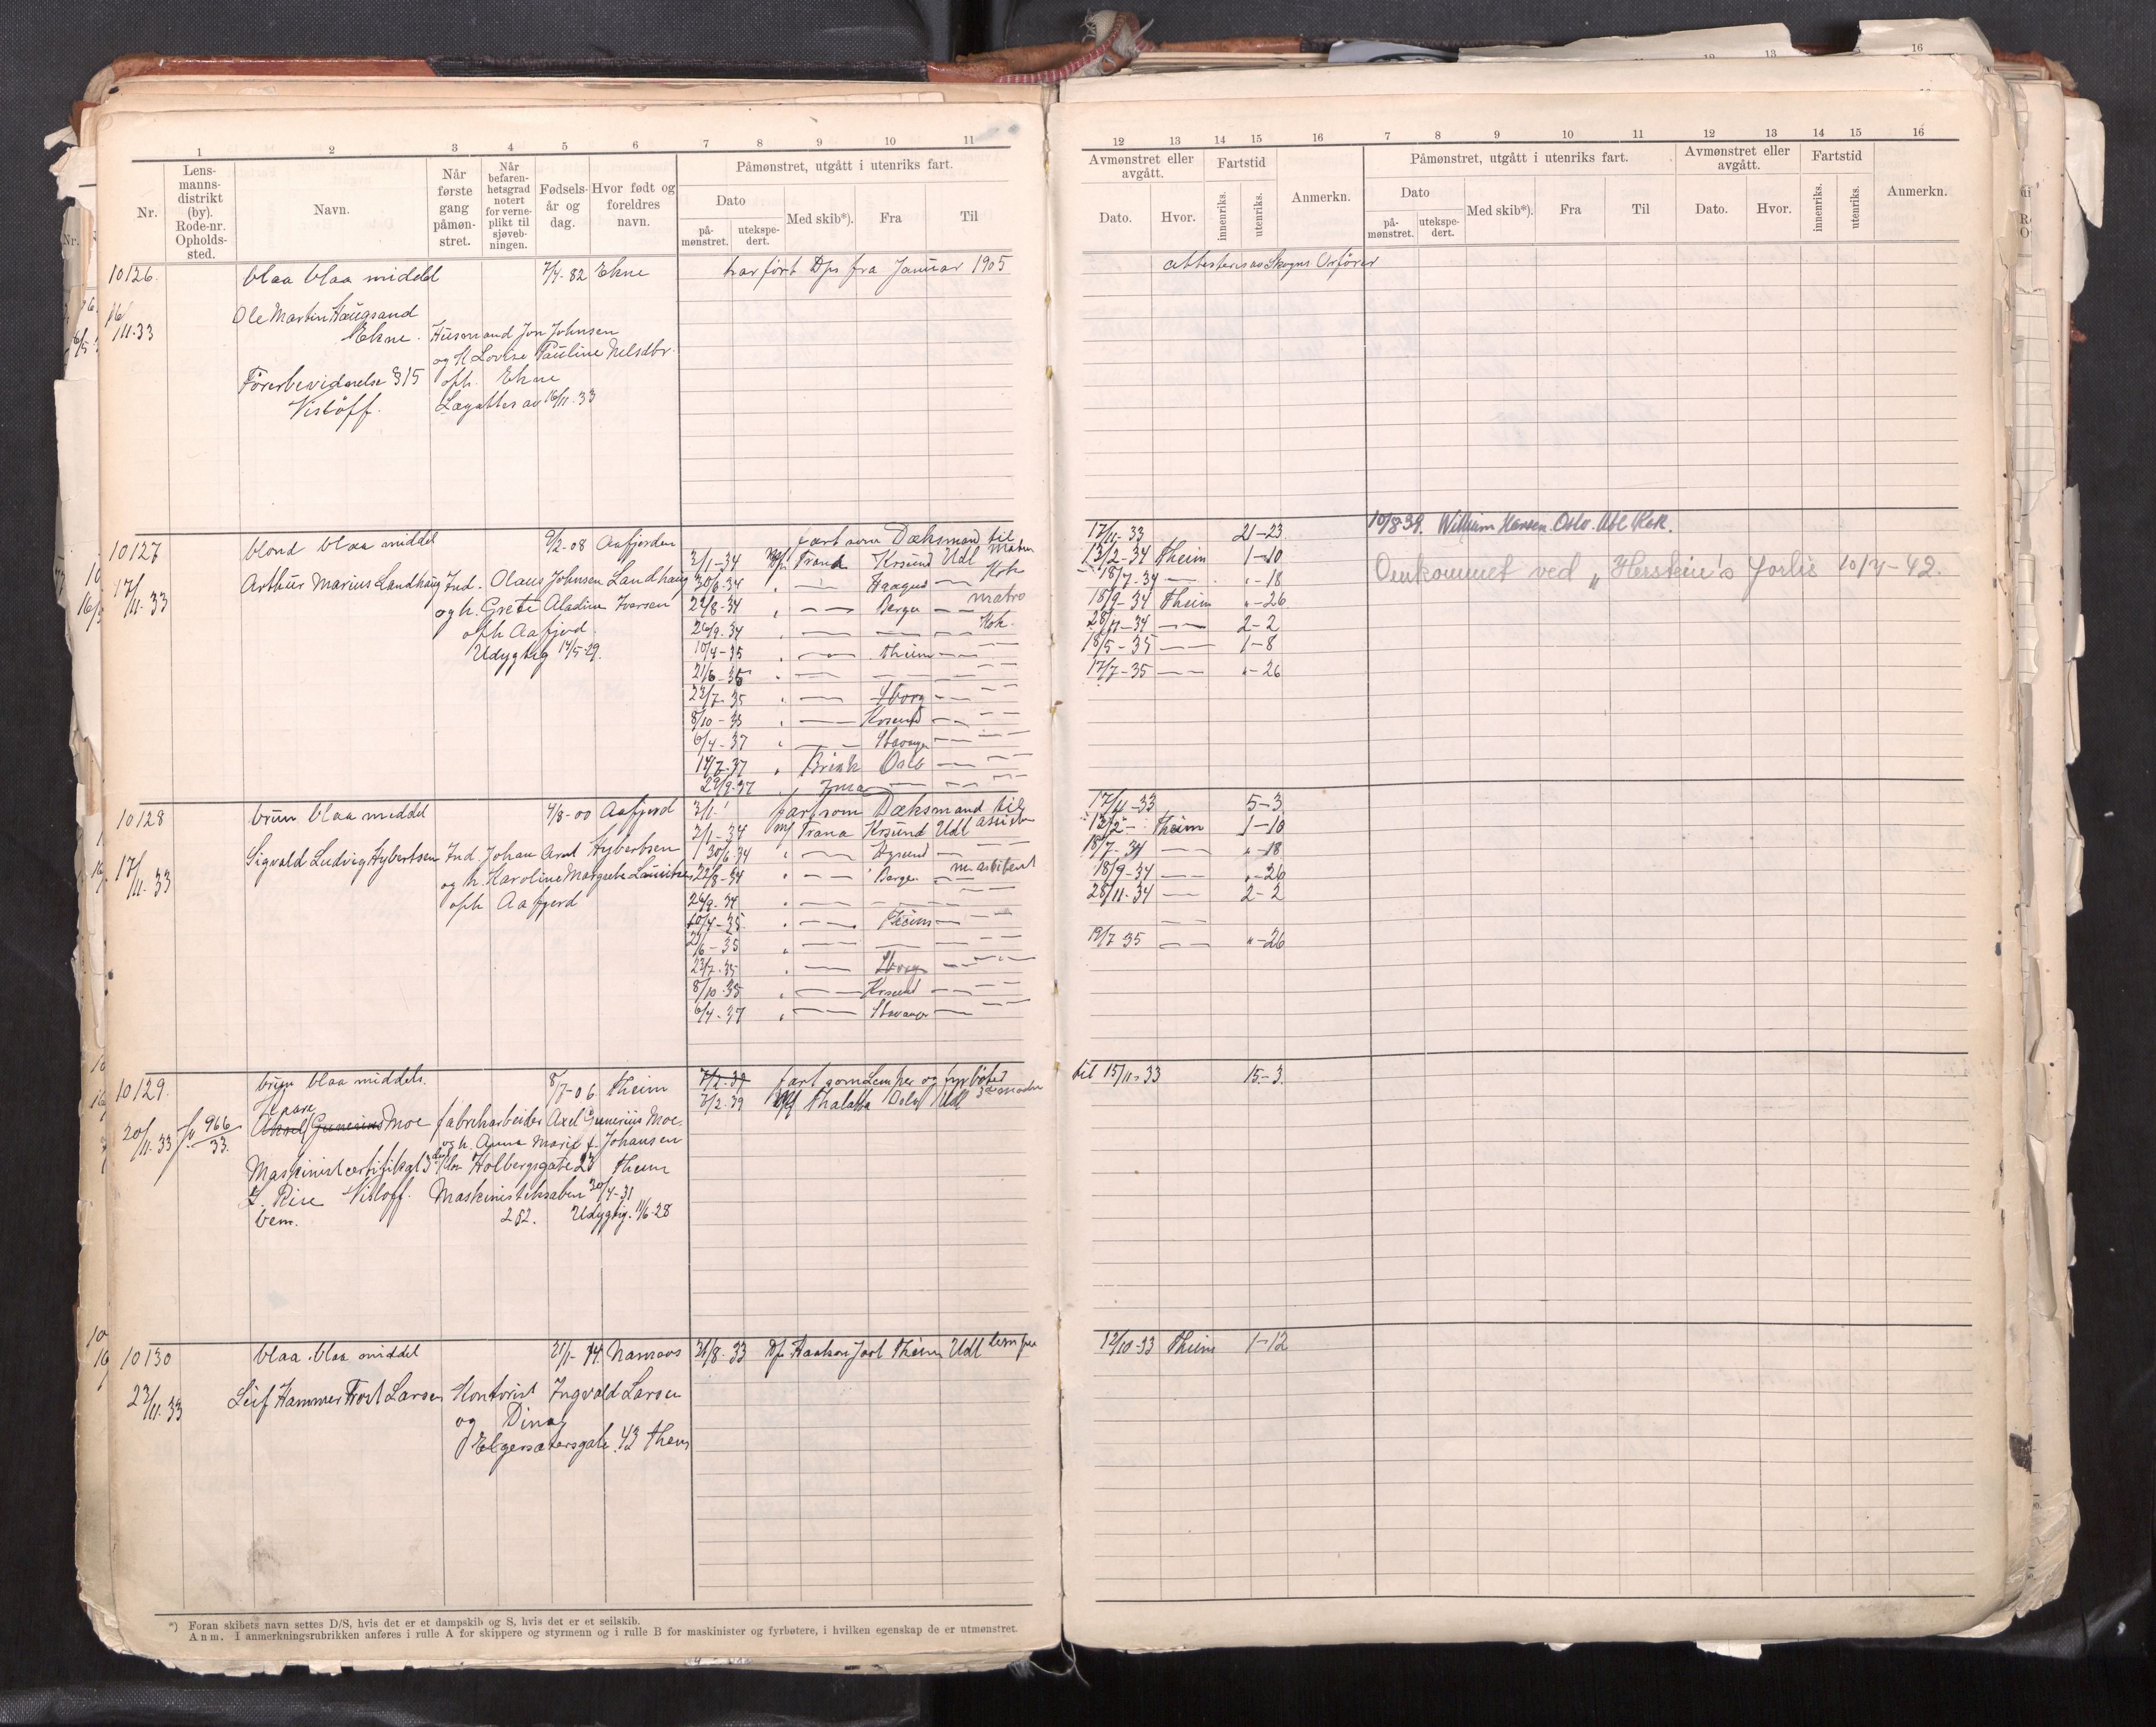 1 2 3 4 5 6 7 8 9 10 11
Nr.
Lens-
manns-
distrikt
(by).
Rode-nr.
Opholds-
sted.
Navn.
Når
første
gang
påmøn-
stret.
Når
befaren-
hetsgrad
notert
for verne-
plikt til
sjøveb-
ningen.
Fødsels-
år og
dag.
Hvor født og
foreldres
navn.
Påmønstret, utgått i utenriks fart.
Dato
på-
mønstret.
utekspe-
dert.
Med skib*).
Fra
Til
10126. blaa blaa middel 7/4-82 Ekne har fört D/s fra Januar 1905
16/11-33 Ole Martin Haugsand
Ekne. Husmand Jon Johnsen
og h. Lovise Pauline Nelsdtr.
Förerbevidnelse § 15 oph. Ekne
Vistoff. Lægattes av 16/11-33
10127 blond blaa middel 9/2-08 Aafjorden fart som Dæksmand til
2/1-34 Trana Krsund Udl matros
17/11-33 Arthur Marius Landhaug Ind. Olaus Johnsen Landhaug 30/6-34 " — Haugus — Kok
og h. Grete Aladine Iversen 22/8-34 " — Bergen — matro
oph Aafjord 26/9-34 " — — — Kok.
Udygtig 14/5-29. 10/4-35 " — Theim — —
21/6-35 " — — — —
23/7-35 " — — —
8/10-35 " — Krsund — —
6/4-37 " — Stavanger — —
14/7-37 " Brisk Oslo — —
29/9-37 " — — —
10128 brun blaa middel 4/8-00 Aafjord 2/1 fart som Dæksmand til
2/1-34 M/s Trana Krsund Udl assisten
17/11-33 Sigvald Ludvig Hybertsen Ind. Johan Arnt Hybertsen 30/6-34 " —
og h. Karoline Margrete Lauritsen 22/8-34 " — Bergen — m assistent
oph Aafjord 26/9-34 " — — — —
10/4-35 " — Theim — —
21/6-35 " — — — —
23/7-35 " — — —
8/10-35 " — Krsund — —
6/4-37 " — Stavanger — —
10129. brun blaa middels. 8/7-06 Theim 7/2-39 fart som Lemper og fyrböter
7/2-39 Thalatta Oslo Udl
20/11-33 966/33. Kaare
Aksel Gunerius Moe fabrekarbeider Axel Gunerius Moe.
og h. Anna Marie f. Johansen
Maskinistcertifikat 3die Kl. Holbergsgate 23 Theim
Z. Rise Vistoff. Maskinisteksamen 30/4-31
bem. 252. Udygtig. 11/6-28
10130 blaa blaa middel 21/1-14. Namsos 31/8-33 D/s Haakon Jarl Theim Udl lemper
23/11-33 Leif Hammer Frost Larsen Kontorist Ingvald Larsen
og Dina
Elgesætersgate 43 Them
*) Foran skibets navn settes D/S, hvis det er et dampskib og S, hvis det er et seilskib.
Anm. I anmerkningsrubrikken anføres i rulle A for skippere og styrmenn og i rulle B for maskinister og fyrbøtere, i hvilken egenskap de er utmønstret.
12 13 14 15 16 7 8 9 10 11 12 13 14 15 16
Avmønstret eller
avgått.
Dato.
Hvor.
Fartstid
innenriks.
utenriks.
Anmerkn.
Påmønstret, utgått i utenriks fart.
Dato
på-
mønstret.
utekspe-
dert.
Med skib*).
Fra
Til
Avmønstret eller
avgått.
Dato.
Hvor.
Fartstid
innenriks.
utenriks.
Anmerkn.
attesteres av Skogns Orförer
17/11-33 21-23 10/8-39. William Hansen. Oslo. Udl Kok.
13/2-34 Theim 1-10 Omkommet ved „Herstein's forlis 10/4-42.
18/7-34 — "-18
18/9-34 Theim "-26
28/11-34 — 2-2
18/5-35 — 1-8
17/7-35 — "-26
17/11-33 5-3
13/2- Theim 1-10
18/7-34 — "-18
18/9-34 — "-26
28/11-34 — 2-2
— —
19/7 35 — "-26
til 15/11-33 15-3
12/10-33 Theim 1-12